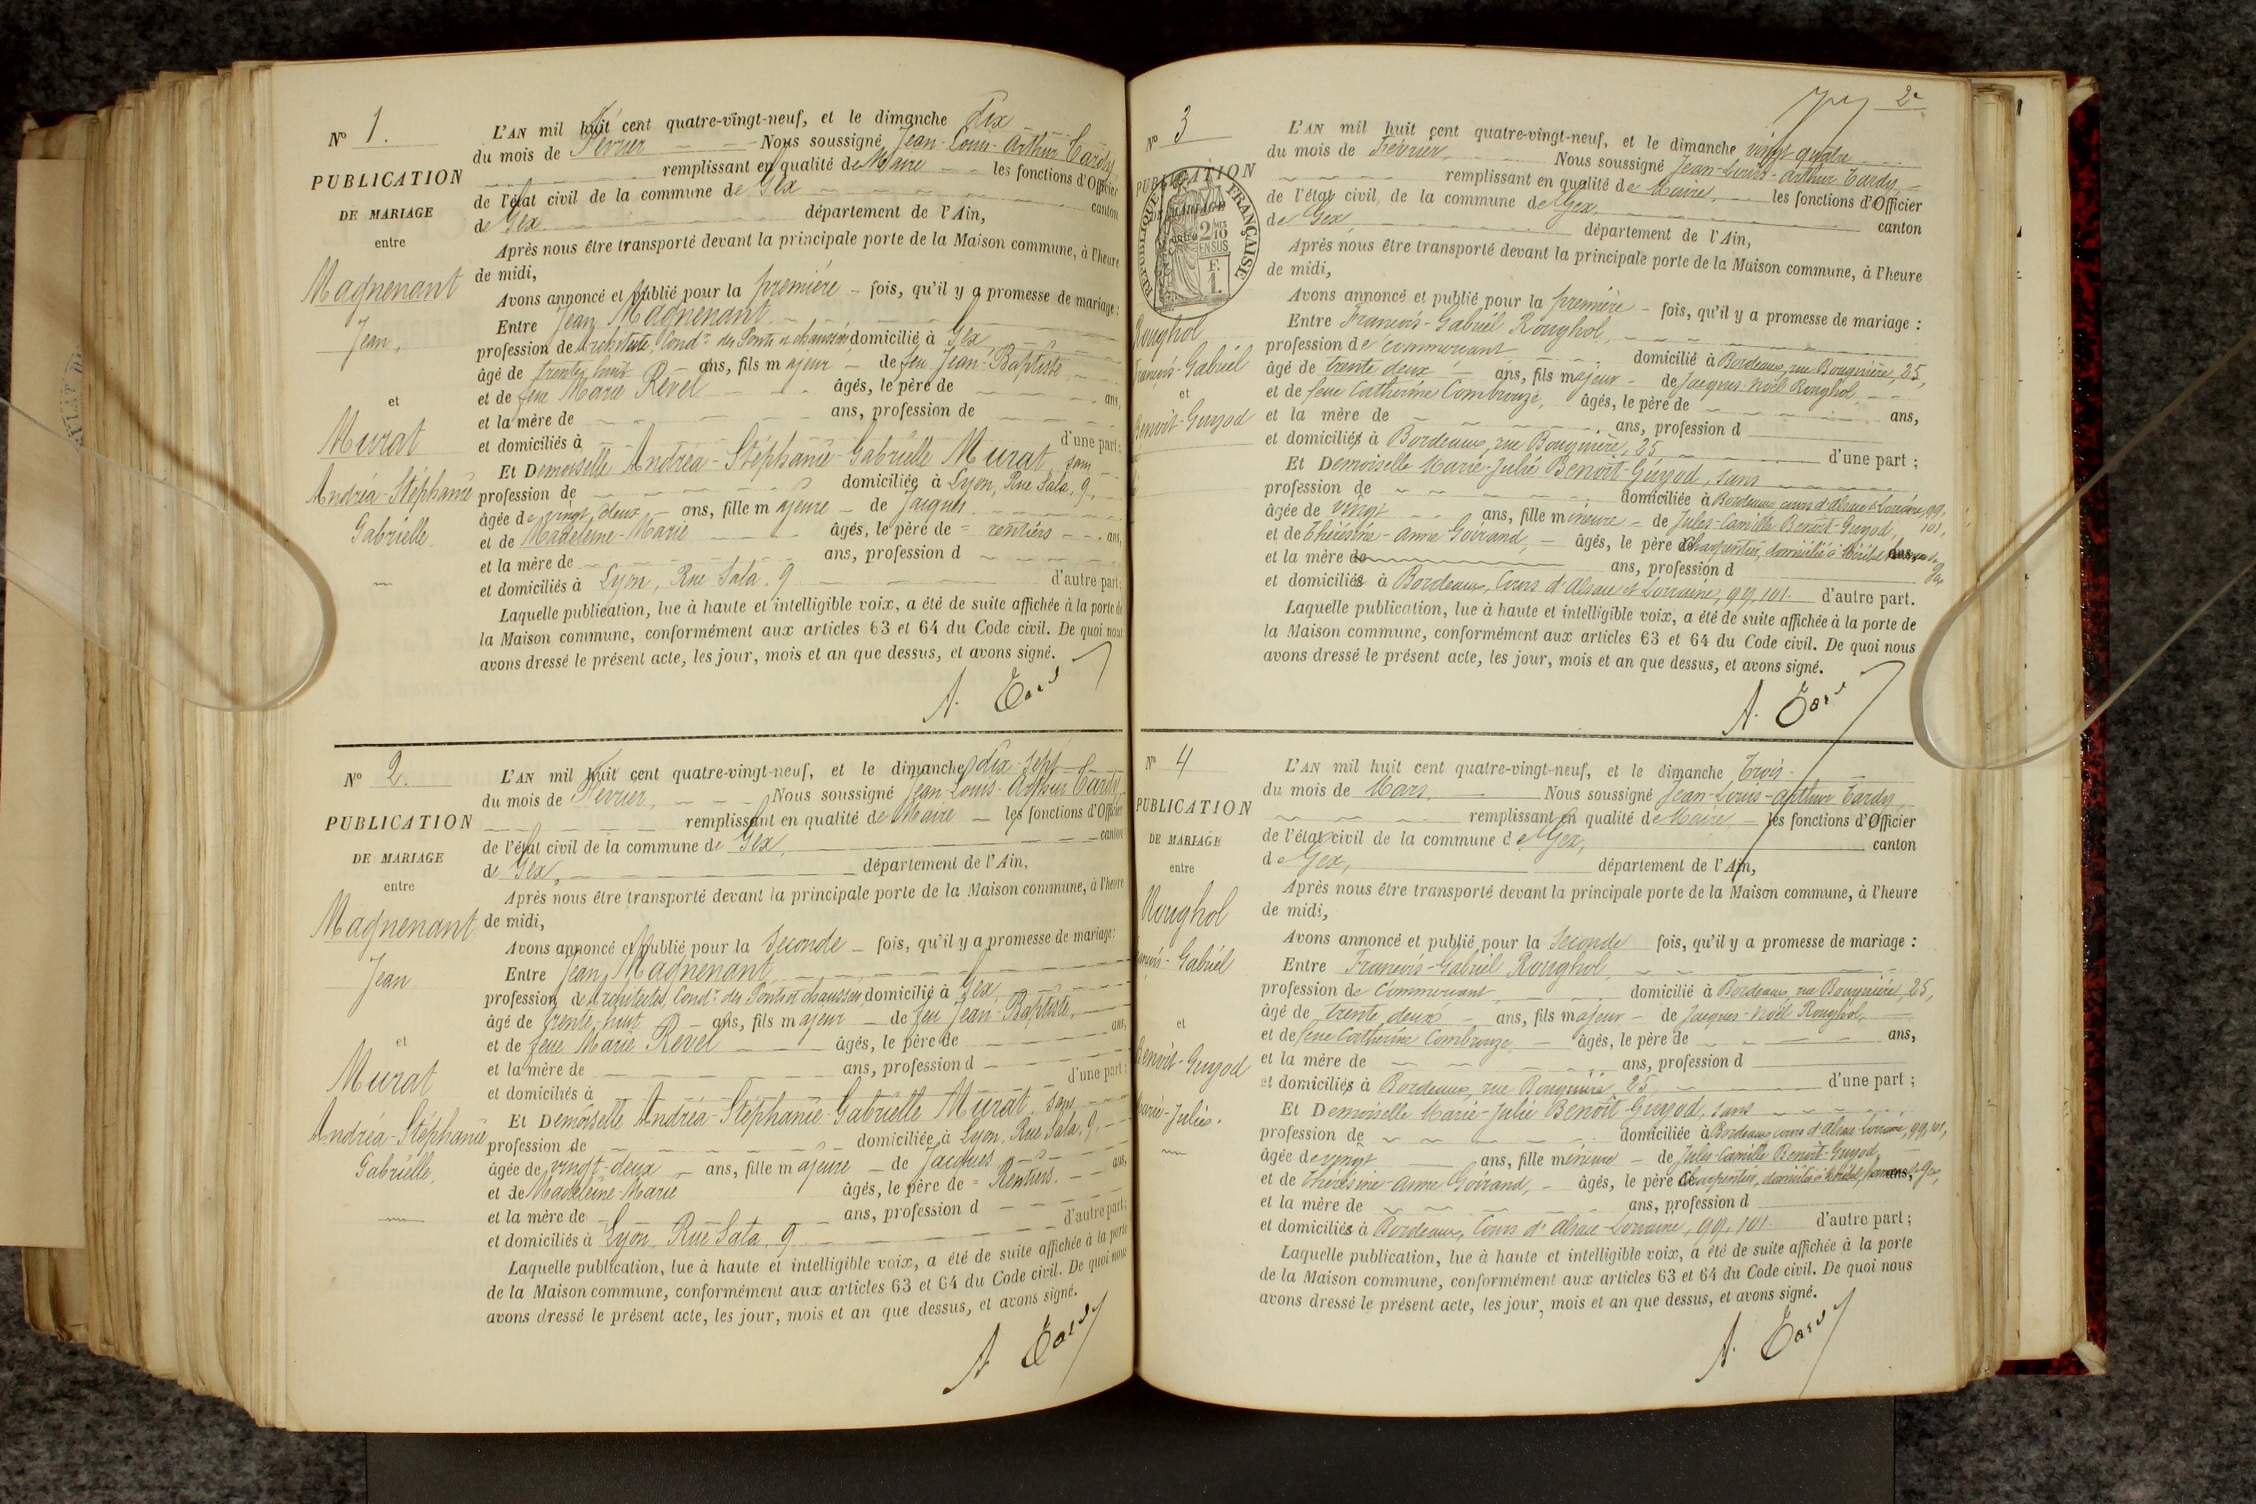 N° 1.
PUBLICATION
DE MARIAGE
entre
Magnenant
Jean,
et
Murat
Andréa-Stéphanie
Gabrielle
L'AN mil huit cent quatre-vingt-neuf, et le dimanche Dix
du mois de Février Nous soussigné Jean-Louis-Arthur Tardy
remplissant en qualité de Maire les fonctions d'Officier
de l'état civil de la commune de Gex canton
de Gex département de l'Ain,
Après nous être transporté devant la principale porte de la Maison commune, à l'heure
de midi,
Avons annoncé et publié pour la première fois, qu'il y a promesse de mariage :
Entre Jean Magnenant
profession de Architecte, Condr des Ponts et chaussées domicilié à Gex
âgé de trente huit ans, fils majeur de feu Jean-Baptiste
et de feue Marie Revel âgés, le père de ans,
et la mère de ans, profession de
et domiciliés à d'une part ;
Et Demoiselle Andréa-Stéphanie-Gabrielle Murat, sans
profession de domiciliée à Lyon, Rue Sala, 9,
âgée de vingt deux ans, fille majeure de Jacques
et de Madeleine-Marie âgés, le père de = rentiers ans,
et la mère de ans, profession d
et domiciliés à Lyon, Rue Sala, 9 d'autre part ;
Laquelle publication, lue à haute et intelligible voix, a été de suite affichée à la porte de
la Maison commune, conformément aux articles 63 et 64 du Code civil. De quoi nous
avons dressé le présent acte, les jour, mois et an que dessus, et avons signé.
A. Tardy
N° 2.
PUBLICATION
DE MARIAGE
entre
Magnenant
Jean
et
Murat
Andréa-Stéphanie
Gabrielle,
L'AN mil huit cent quatre-vingt-neuf, et le dimanche dix-sept
du mois de Février, Nous soussigné Jean-Louis-Arthur Tardy
remplissant en qualité de Maire les fonctions d'Officier
de l'état civil de la commune de Gex, canton
de Gex, département de l'Ain,
Après nous être transporté devant la principale porte de la Maison commune, à l'heure
de midi,
Avons annoncé et publié pour la seconde fois, qu'il y a promesse de mariage :
Entre Jean Magnenant,
profession de Architecte, Condr des Ponts et chaussées domicilié à Gex
âgé de trente-huit ans, fils majeur de feu Jean-Baptiste,
et de feue Marie Revel âgés, le père de ans,
et la mère de ans, profession d
et domiciliés à d'une part ;
Et Demoiselle Andréa-Stéphanie-Gabrielle Murat, sans
profession de domiciliée à Lyon, Rue Sala, 9,
âgée de vingt-deux ans, fille majeure de Jacques
et de Madeleine-Marie âgés, le père de = Rentiers. ans,
et la mère de ans, profession d
et domiciliés à Lyon, Rue Sala, 9 d'autre part ;
Laquelle publication, lue à haute et intelligible voix, a été de suite affichée à la porte
de la Maison commune, conformément aux articles 63 et 64 du Code civil. De quoi nous
avons dressé le présent acte, les jour, mois et an que dessus, et avons signé.
A. Tardy
2e
N° 3
PUBLICATION
DE MARIAGE
RÉPUBLIQUE FRANÇAISE
2/10
EN SUS
F.
1.
Roughol
François-Gabriel
et
Benoît-Guyod
L'AN mil huit cent quatre-vingt-neuf, et le dimanche vingt quatre
du mois de Février, Nous soussigné Jean-Louis-Arthur Tardy,
remplissant en qualité de Maire, les fonctions d'Officier
de l'état civil de la commune de Gex, canton
de Gex, département de l'Ain,
Après nous être transporté devant la principale porte de la Maison commune, à l'heure
de midi,
Avons annoncé et publié pour la première fois, qu'il y a promesse de mariage :
Entre François-Gabriel Roughol,
profession de commerçant domicilié à Bordeaux, rue Bouquière, 25,
âgé de trente deux ans, fils majeur de Jacques-Noël Roughol,
et de feue Catherine Combrouze, âgés, le père de ans,
et la mère de ans, profession d
et domiciliés à Bordeaux, rue Bouquière, 25 d'une part ;
Et Demoiselle Marie-Julie Benoît-Guyod, sans
profession de domiciliée à Bordeaux cours d'Alsace & Lorraine, 99,
101,
âgée de vingt ans, fille mineure de Jules-Camille Benoît-Guyod,
et de Thérésine-Anne Goirand, âgés, le père charpentier, domicilié à
Gex
et la mère de ans, profession d
et domiciliés à Bordeaux, Cours d'Alsace et Lorraine, 99, 101. d'autre part.
Laquelle publication, lue à haute et intelligible voix, a été de suite affichée à la porte de
la Maison commune, conformément aux articles 63 et 64 du Code civil. De quoi nous
avons dressé le présent acte, les jour, mois et an que dessus, et avons signé.
A. Tardy
N° 4
PUBLICATION
DE MARIAGE
entre
Roughol
François-Gabriel
et
Benoît-Guyod
Marie-Julie.
L'AN mil huit cent quatre-vingt-neuf, et le dimanche Trois
du mois de Mars, Nous soussigné Jean-Louis-Arthur Tardy,
remplissant en qualité de Maire les fonctions d'Officier
de l'état civil de la commune de Gex, canton
de Gex, département de l'Ain,
Après nous être transporté devant la principale porte de la Maison commune, à l'heure
de midi,
Avons annoncé et publié pour la seconde fois, qu'il y a promesse de mariage :
Entre François-Gabriel Roughol,
profession de Commerçant, domicilié à Bordeaux, rue Bouquière, 25,
âgé de trente deux ans, fils majeur de Jacques-Noël Roughol,
et de feue Catherine Combrouze âgés, le père de ans,
et la mère de ans, profession d
et domiciliés à Bordeaux, rue Bouquière, 25 d'une part ;
Et Demoiselle Marie-Julie Benoît-Guyod, sans
profession de domiciliée à Bordeaux, cours d'Alsace-Lorraine, 99, 101,
âgée de vingt ans, fille mineure de Jules-Camille Benoît-Guyod,
et de Thérésine-Anne Goirand, âgés, le père charpentier, domicilié à Gex,
et la mère de ans, profession d
et domiciliés à Bordeaux, Cours d'Alsace-Lorraine, 99, 101. d'autre part ;
Laquelle publication, lue à haute et intelligible voix, a été de suite affichée à la porte
de la Maison commune, conformément aux articles 63 et 64 du Code civil. De quoi nous
avons dressé le présent acte, les jour, mois et an que dessus, et avons signé.
A. Tardy